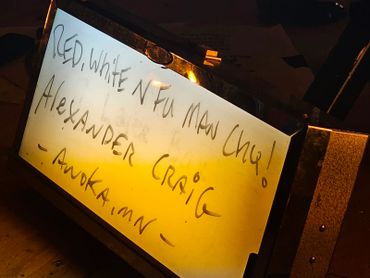 RED, WHitE N FU MAN CHU!
AlEXANDER CRAiG
- ANOKA, MN -